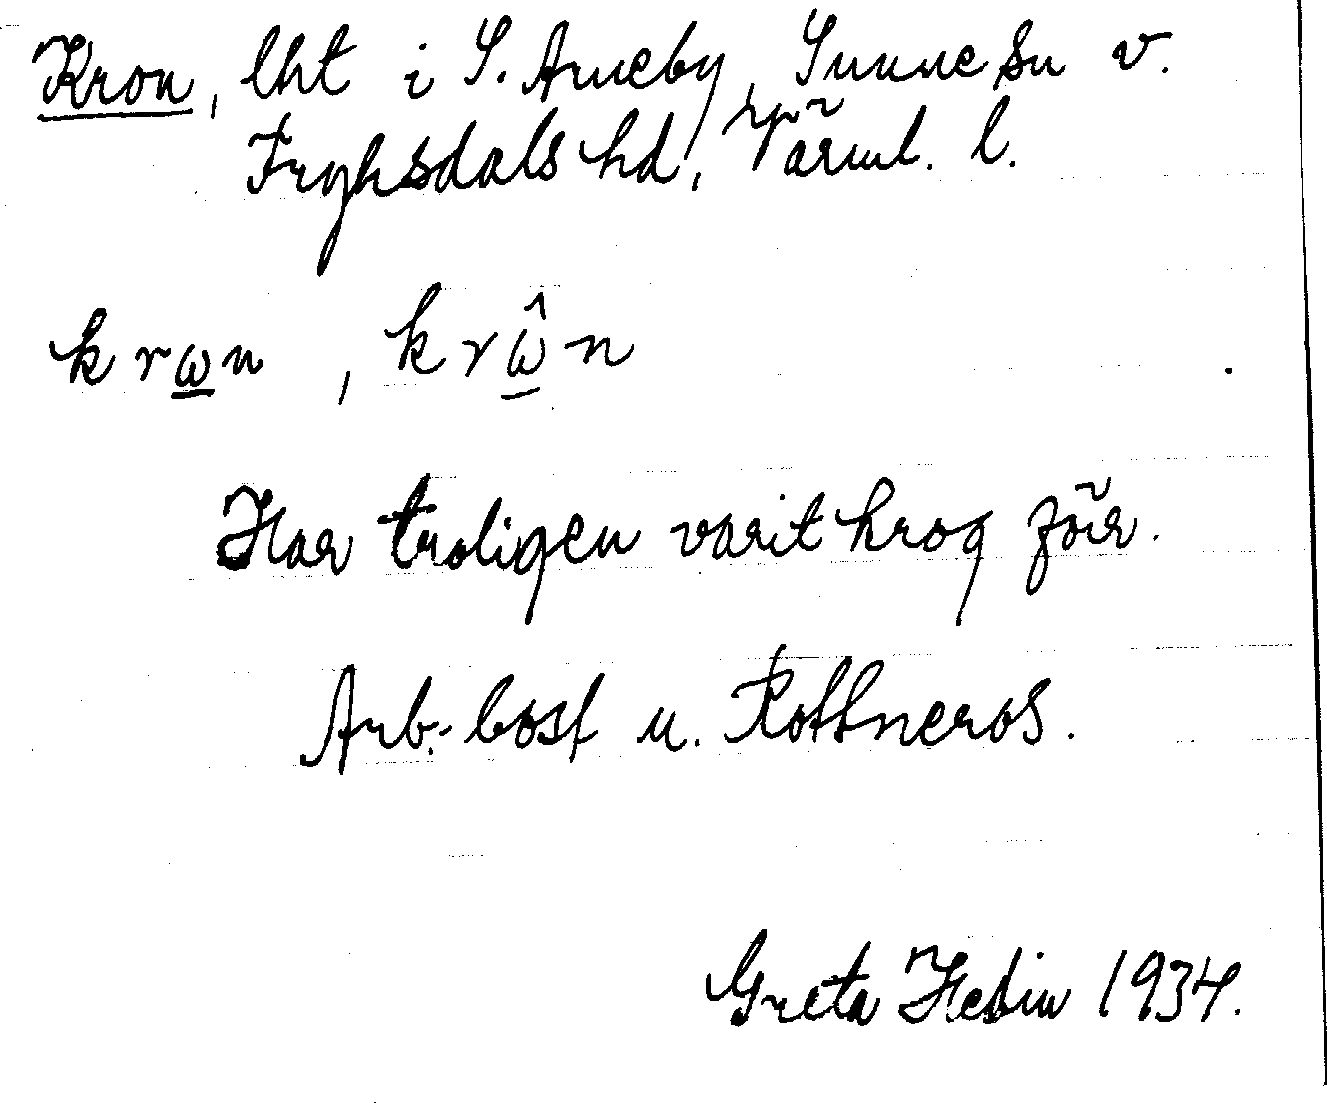 Kron, lht i S. Åmeby, Sunne sn v.
Fryksdals hd, Värml. l.
krωn, krω̂n
Har troligen varit krog förr.
Arb.-bost u. Rottneros.
Greta Hedin 1934.